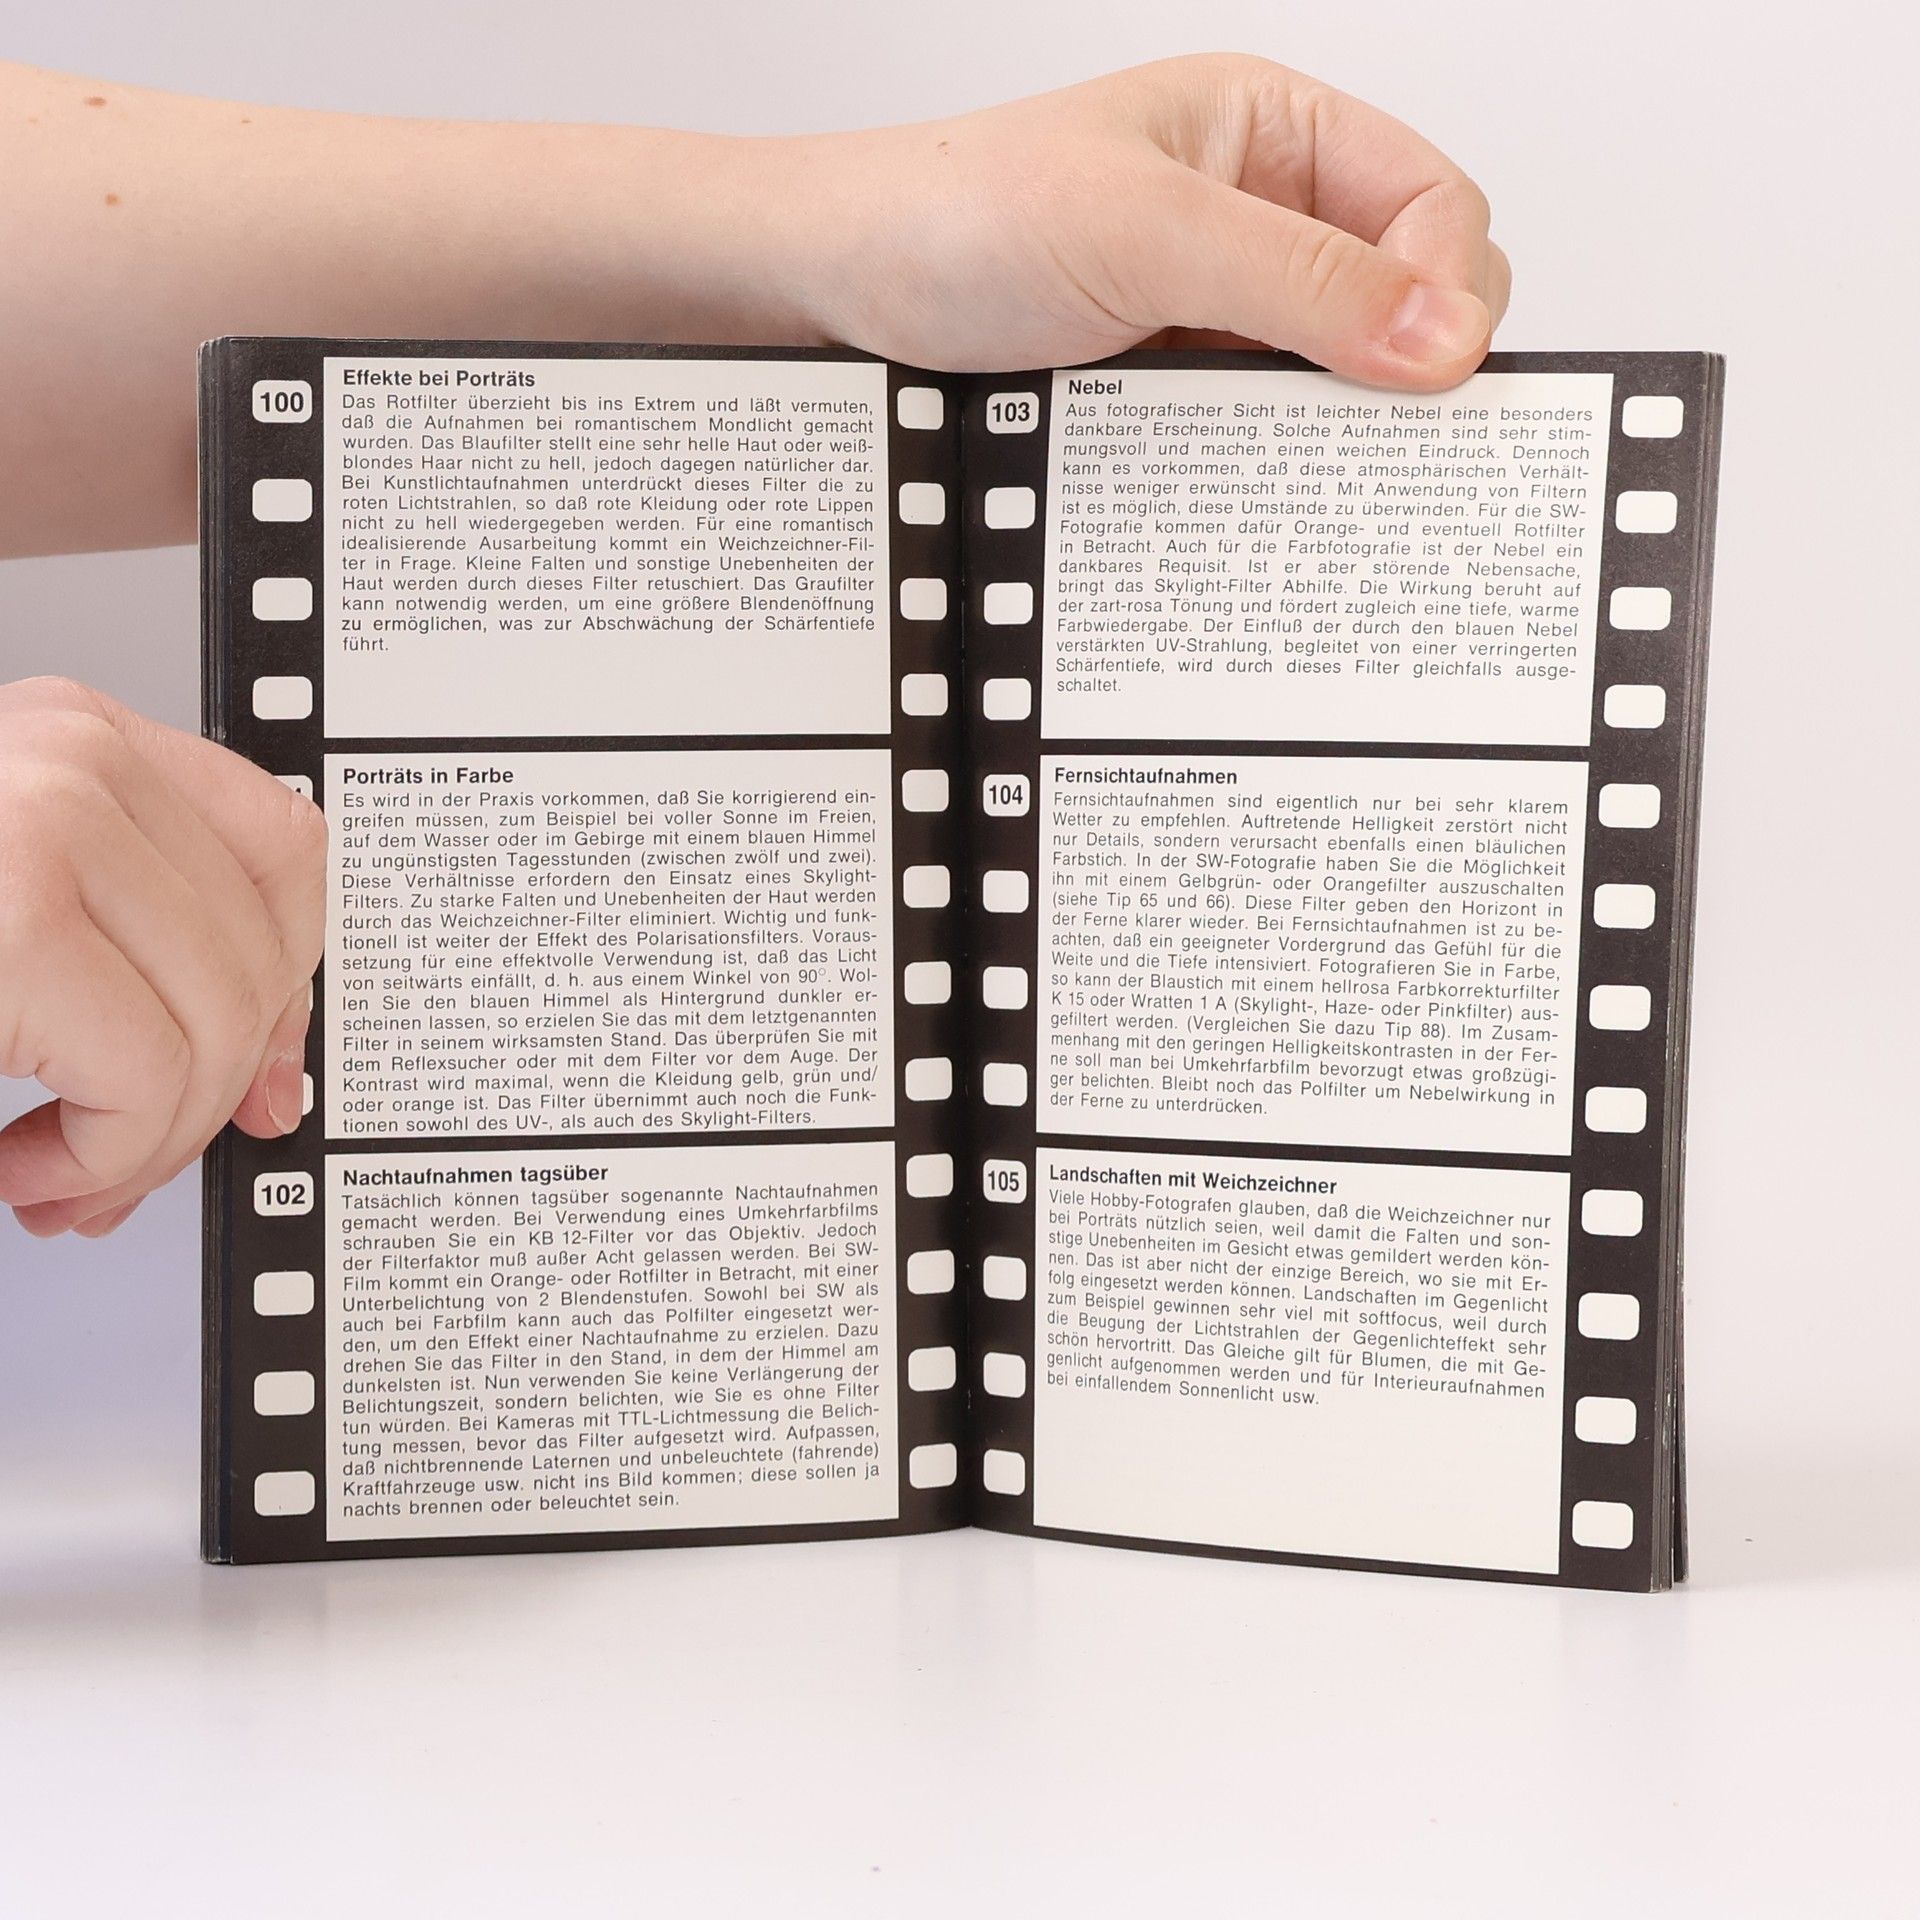 100
Effekte bei Porträts
Das Rotfilter überzieht bis ins Extrem und läßt vermuten,
daß die Aufnahmen bei romantischem Mondlicht gemacht
wurden. Das Blaufilter stellt eine sehr helle Haut oder weiß-
blondes Haar nicht zu hell, jedoch dagegen natürlicher dar.
Bei Kunstlichtaufnahmen unterdrückt dieses Filter die zu
roten Lichtstrahlen, so daß rote Kleidung oder rote Lippen
nicht zu hell wiedergegeben werden. Für eine romantisch
idealisierende Ausarbeitung kommt ein Weichzeichner-Fil-
ter in Frage. Kleine Falten und sonstige Unebenheiten der
Haut werden durch dieses Filter retuschiert. Das Graufilter
kann notwendig werden, um eine größere Blendenöffnung
zu ermöglichen, was zur Abschwächung der Schärfentiefe
führt.
Porträts in Farbe
Es wird in der Praxis vorkommen, daß Sie korrigierend ein-
greifen müssen, zum Beispiel bei voller Sonne im Freien,
auf dem Wasser oder im Gebirge mit einem blauen Himmel
zu ungünstigsten Tagesstunden (zwischen zwölf und zwei).
Diese Verhältnisse erfordern den Einsatz eines Skylight-
Filters. Zu starke Falten und Unebenheiten der Haut werden
durch das Weichzeichner-Filter eliminiert. Wichtig und funk-
tionell ist weiter der Effekt des Polarisationsfilters. Voraus-
setzung für eine effektvolle Verwendung ist, daß das Licht
von seitwärts einfällt, d. h. aus einem Winkel von 90°. Wol-
len Sie den blauen Himmel als Hintergrund dunkler er-
scheinen lassen, so erzielen Sie das mit dem letztgenannten
Filter in seinem wirksamsten Stand. Das überprüfen Sie mit
dem Reflexsucher oder mit dem Filter vor dem Auge. Der
Kontrast wird maximal, wenn die Kleidung gelb, grün und/
oder orange ist. Das Filter übernimmt auch noch die Funk-
tionen sowohl des UV-, als auch des Skylight-Filters.
102
Nachtaufnahmen tagsüber
Tatsächlich können tagsüber sogenannte Nachtaufnahmen
gemacht werden. Bei Verwendung eines Umkehrfarbfilms
schrauben Sie ein KB 12-Filter vor das Objektiv. Jedoch
der Filterfaktor muß außer Acht gelassen werden. Bei SW-
Film kommt ein Orange- oder Rotfilter in Betracht, mit einer
Unterbelichtung von 2 Blendenstufen. Sowohl bei SW als
auch bei Farbfilm kann auch das Polfilter eingesetzt wer-
den, um den Effekt einer Nachtaufnahme zu erzielen. Dazu
drehen Sie das Filter in den Stand, in dem der Himmel am
dunkelsten ist. Nun verwenden Sie keine Verlängerung der
Belichtungszeit, sondern belichten, wie Sie es ohne Filter
tun würden. Bei Kameras mit TTL-Lichtmessung die Belich-
tung messen, bevor das Filter aufgesetzt wird. Aufpassen,
daß nichtbrennende Laternen und unbeleuchtete (fahrende)
Kraftfahrzeuge usw. nicht ins Bild kommen; diese sollen ja
nachts brennen oder beleuchtet sein.
103
Nebel
Aus fotografischer Sicht ist leichter Nebel eine besonders
dankbare Erscheinung. Solche Aufnahmen sind sehr stim-
mungsvoll und machen einen weichen Eindruck. Dennoch
kann es vorkommen, daß diese atmosphärischen Verhält-
nisse weniger erwünscht sind. Mit Anwendung von Filtern
ist es möglich, diese Umstände zu überwinden. Für die SW-
Fotografie kommen dafür Orange- und eventuell Rotfilter
in Betracht. Auch für die Farbfotografie ist der Nebel ein
dankbares Requisit. Ist er aber störende Nebensache,
bringt das Skylight-Filter Abhilfe. Die Wirkung beruht auf
der zart-rosa Tönung und fördert zugleich eine tiefe, warme
Farbwiedergabe. Der Einfluß der durch den blauen Nebel
verstärkten UV-Strahlung, begleitet von einer verringerten
Schärfentiefe, wird durch dieses Filter gleichfalls ausge-
schaltet.
104
Fernsichtaufnahmen
Fernsichtaufnahmen sind eigentlich nur bei sehr klarem
Wetter zu empfehlen. Auftretende Helligkeit zerstört nicht
nur Details, sondern verursacht ebenfalls einen bläulichen
Farbstich. In der SW-Fotografie haben Sie die Möglichkeit
ihn mit einem Gelbgrün- oder Orangefilter auszuschalten
(siehe Tip 65 und 66). Diese Filter geben den Horizont in
der Ferne klarer wieder. Bei Fernsichtaufnahmen ist zu be-
achten, daß ein geeigneter Vordergrund das Gefühl für die
Weite und die Tiefe intensiviert. Fotografieren Sie in Farbe,
so kann der Blaustich mit einem hellrosa Farbkorrekturfilter
K 15 oder Wratten 1 A (Skylight-, Haze- oder Pinkfilter) aus-
gefiltert werden. (Vergleichen Sie dazu Tip 88). Im Zusam-
menhang mit den geringen Helligkeitskontrasten in der Fer-
ne soll man bei Umkehrfarbfilm bevorzugt etwas großzügi-
ger belichten. Bleibt noch das Polfilter um Nebelwirkung in
der Ferne zu unterdrücken.
105
Landschaften mit Weichzeichner
Viele Hobby-Fotografen glauben, daß die Weichzeichner nur
bei Porträts nützlich seien, weil damit die Falten und son-
stige Unebenheiten im Gesicht etwas gemildert werden kön-
nen. Das ist aber nicht der einzige Bereich, wo sie mit Er-
folg eingesetzt werden können. Landschaften im Gegenlicht
zum Beispiel gewinnen sehr viel mit softfocus, weil durch
die Beugung der Lichtstrahlen der Gegenlichteffekt sehr
schön hervortritt. Das Gleiche gilt für Blumen, die mit Ge-
genlicht aufgenommen werden und für Interieuraufnahmen
bei einfallendem Sonnenlicht usw.